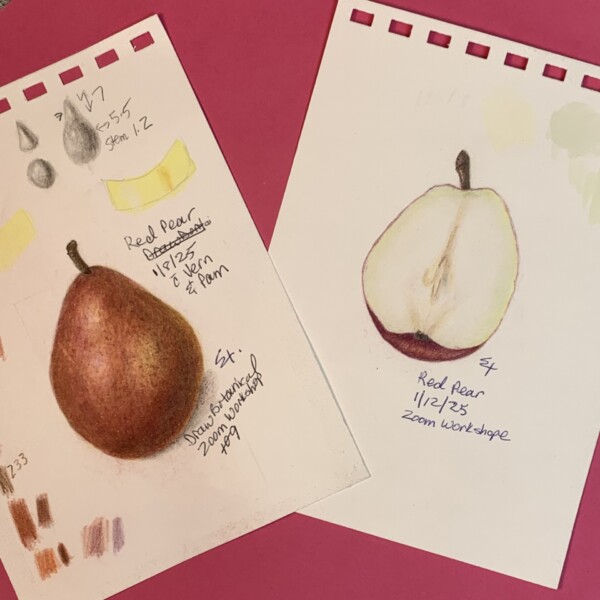 7
5.5
Stem 1.2
Red Pear
1/8/25
c̄ Vern
& Pam
Draw Botanical
Zoom Workshop
233
Red Pear
1/12/25
Zoom Workshope